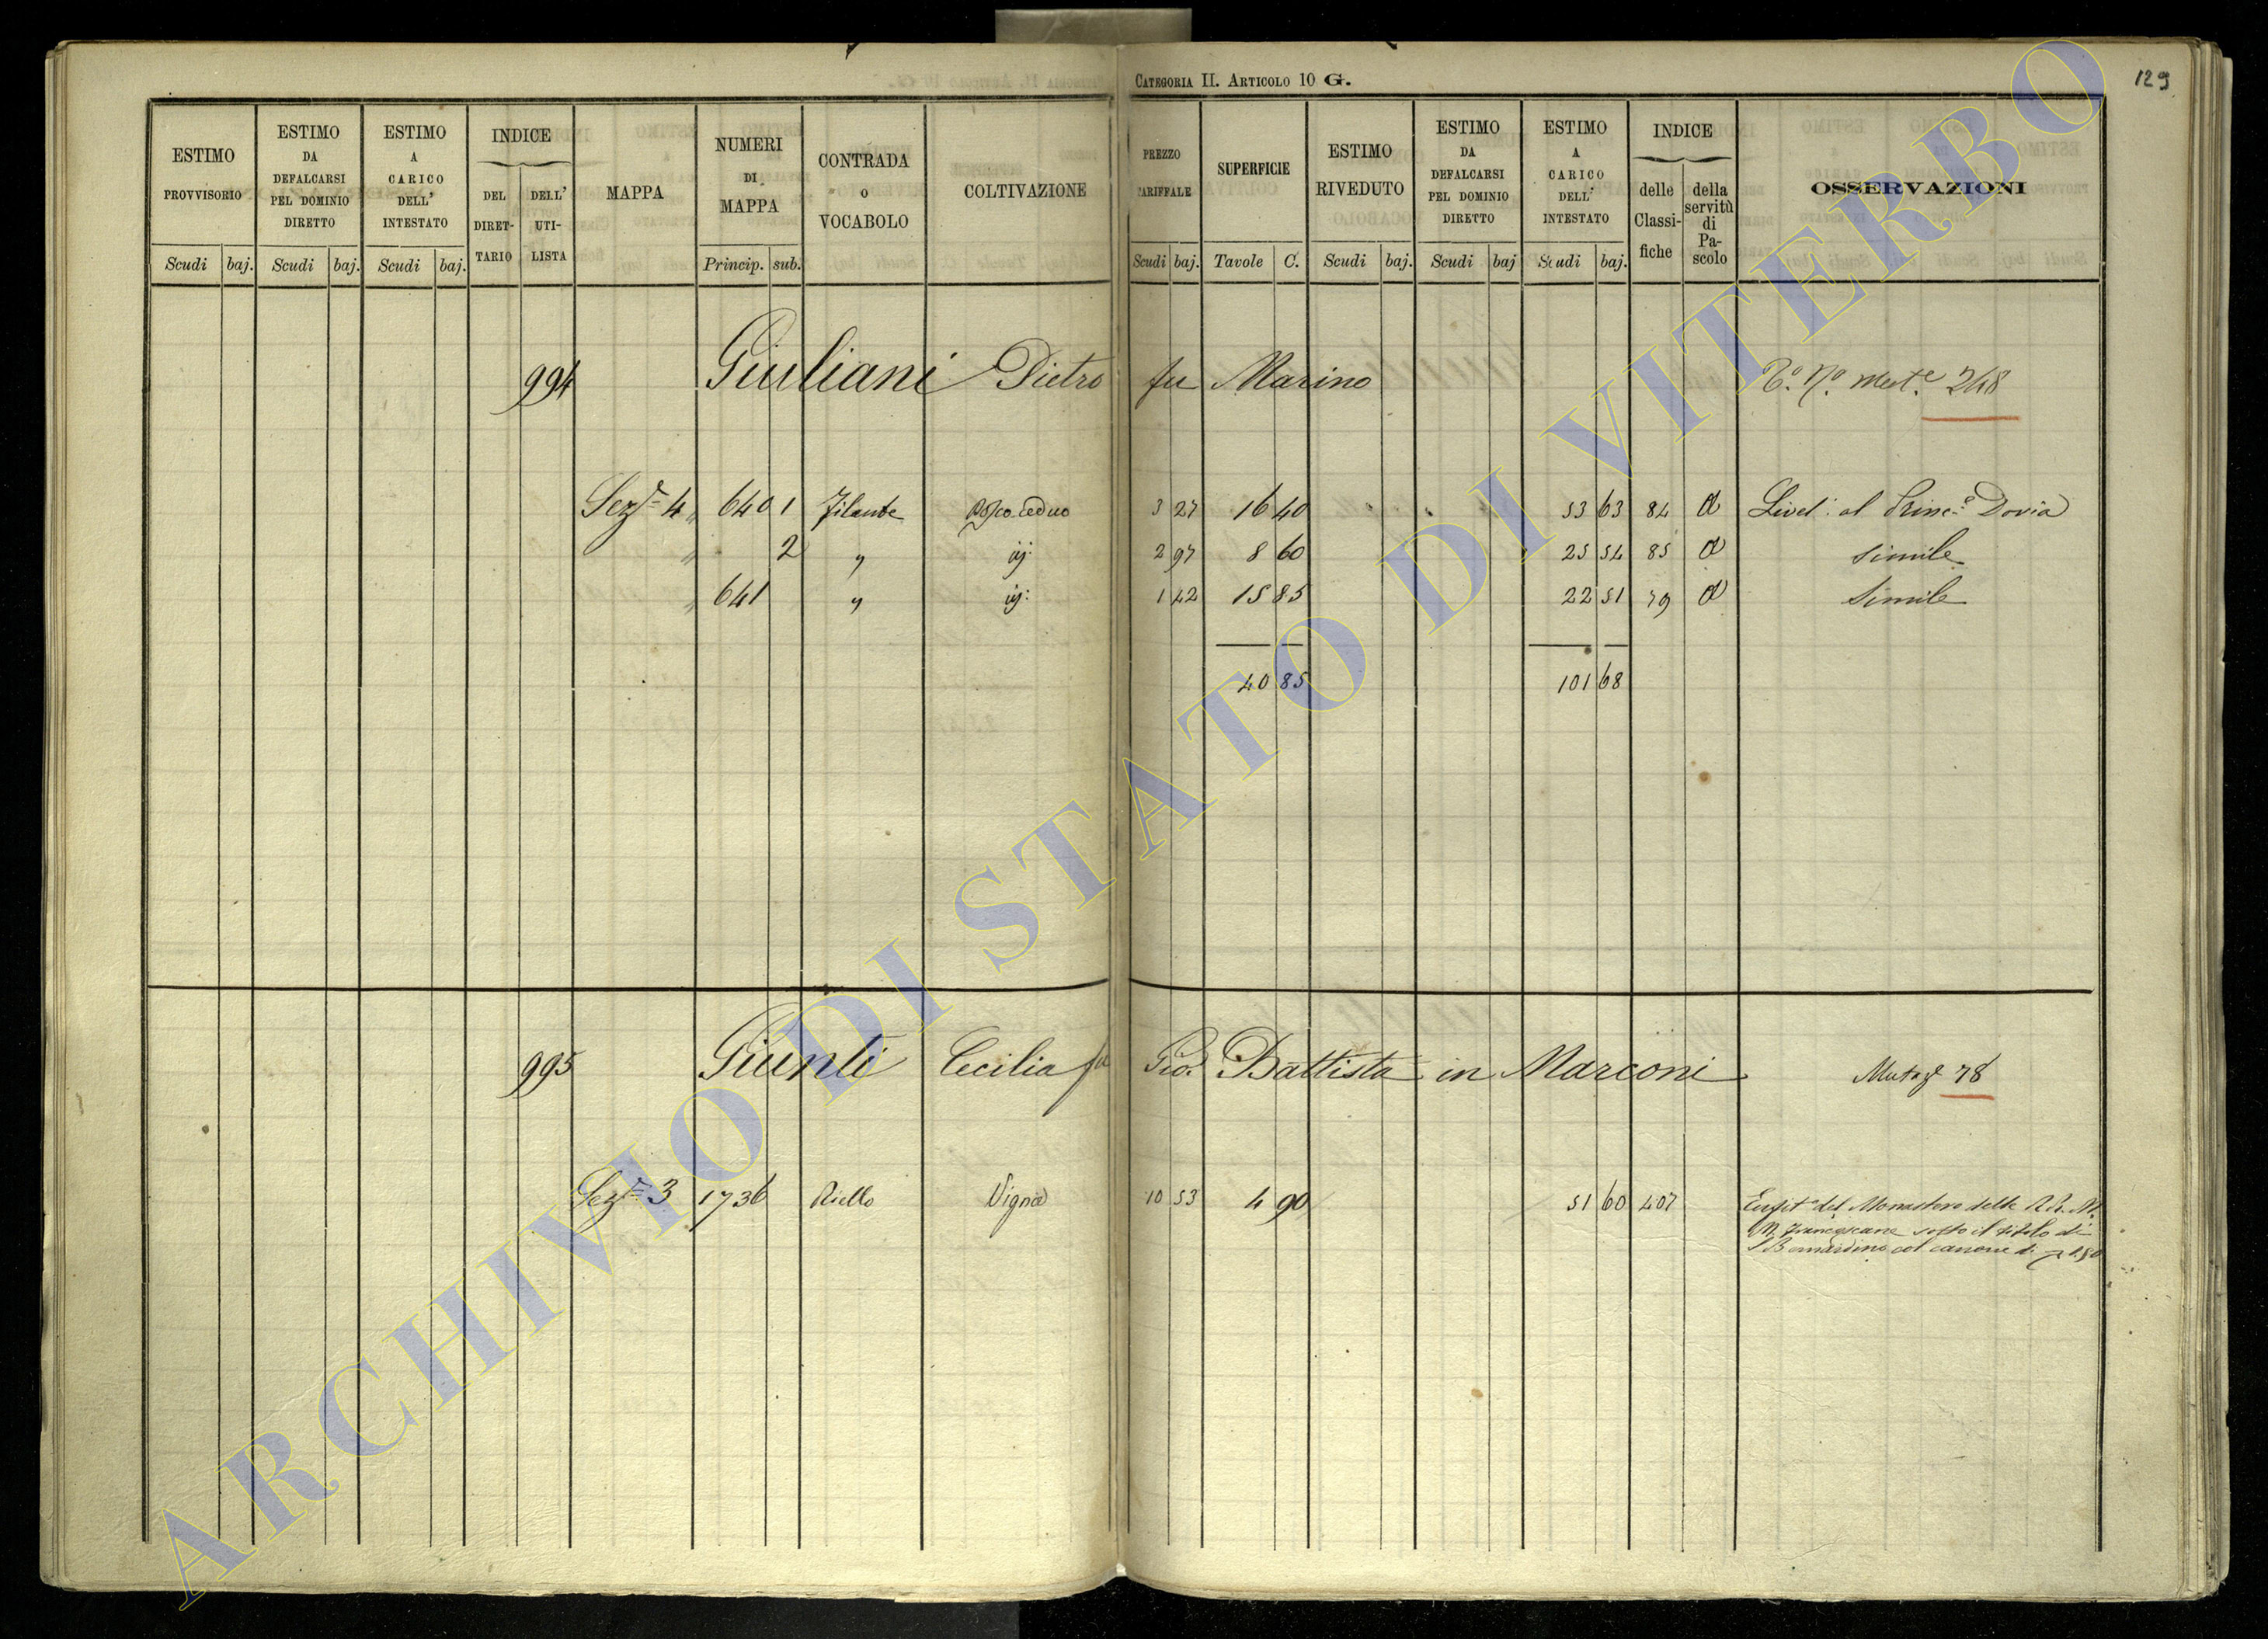 CATEGORIA II. ARTICOLO 10 G.
129
ESTIMO PROVVISORIO Scudi baj.
ESTIMO DA DEFALCARSI PEL DOMINIO DIRETTO Scudi baj.
ESTIMO A CARICO DELL' INTESTATO Scudi baj.
INDICE DEL DIRETTARIO DELL' UTILISTA
MAPPA
NUMERI DI MAPPA Princip. sub.
CONTRADA O VOCABOLO
COLTIVAZIONE
PREZZO TARIFFALE Scudi baj.
SUPERFICIE Tavole C.
ESTIMO RIVEDUTO Scudi baj.
ESTIMO DA DEFALCARSI PEL DOMINIO DIRETTO Scudi baj
ESTIMO A CARICO DELL' INTESTATO Scudi baj.
INDICE delle Classifiche della servitù di Pascolo
OSSERVAZIONI
994 Giuliani Pietro fu Marino 248
Sez.e 4 640 1 Filante Bosco ceduo 3 27 16 40 53 63 84 a Livel: al Princ.e Doria
" 2 " ij: 2 97 8 60 25 54 85 a simile
" 641 " ij: 1 42 15 85 22 51 79 a Simile
40 85 101 68
995 Giunti Cecilia fu Gio. Battista in Marconi 78
Sez.e 3 1736 Riello Vigna 10 53 4 90 51 60 407 Enfit.a del Monastero delle RR. M.
M. Francescane sotto il titolo di
S Bernardino col canone di 1.50
ARCHIVIO DI STATO DI VITERBO